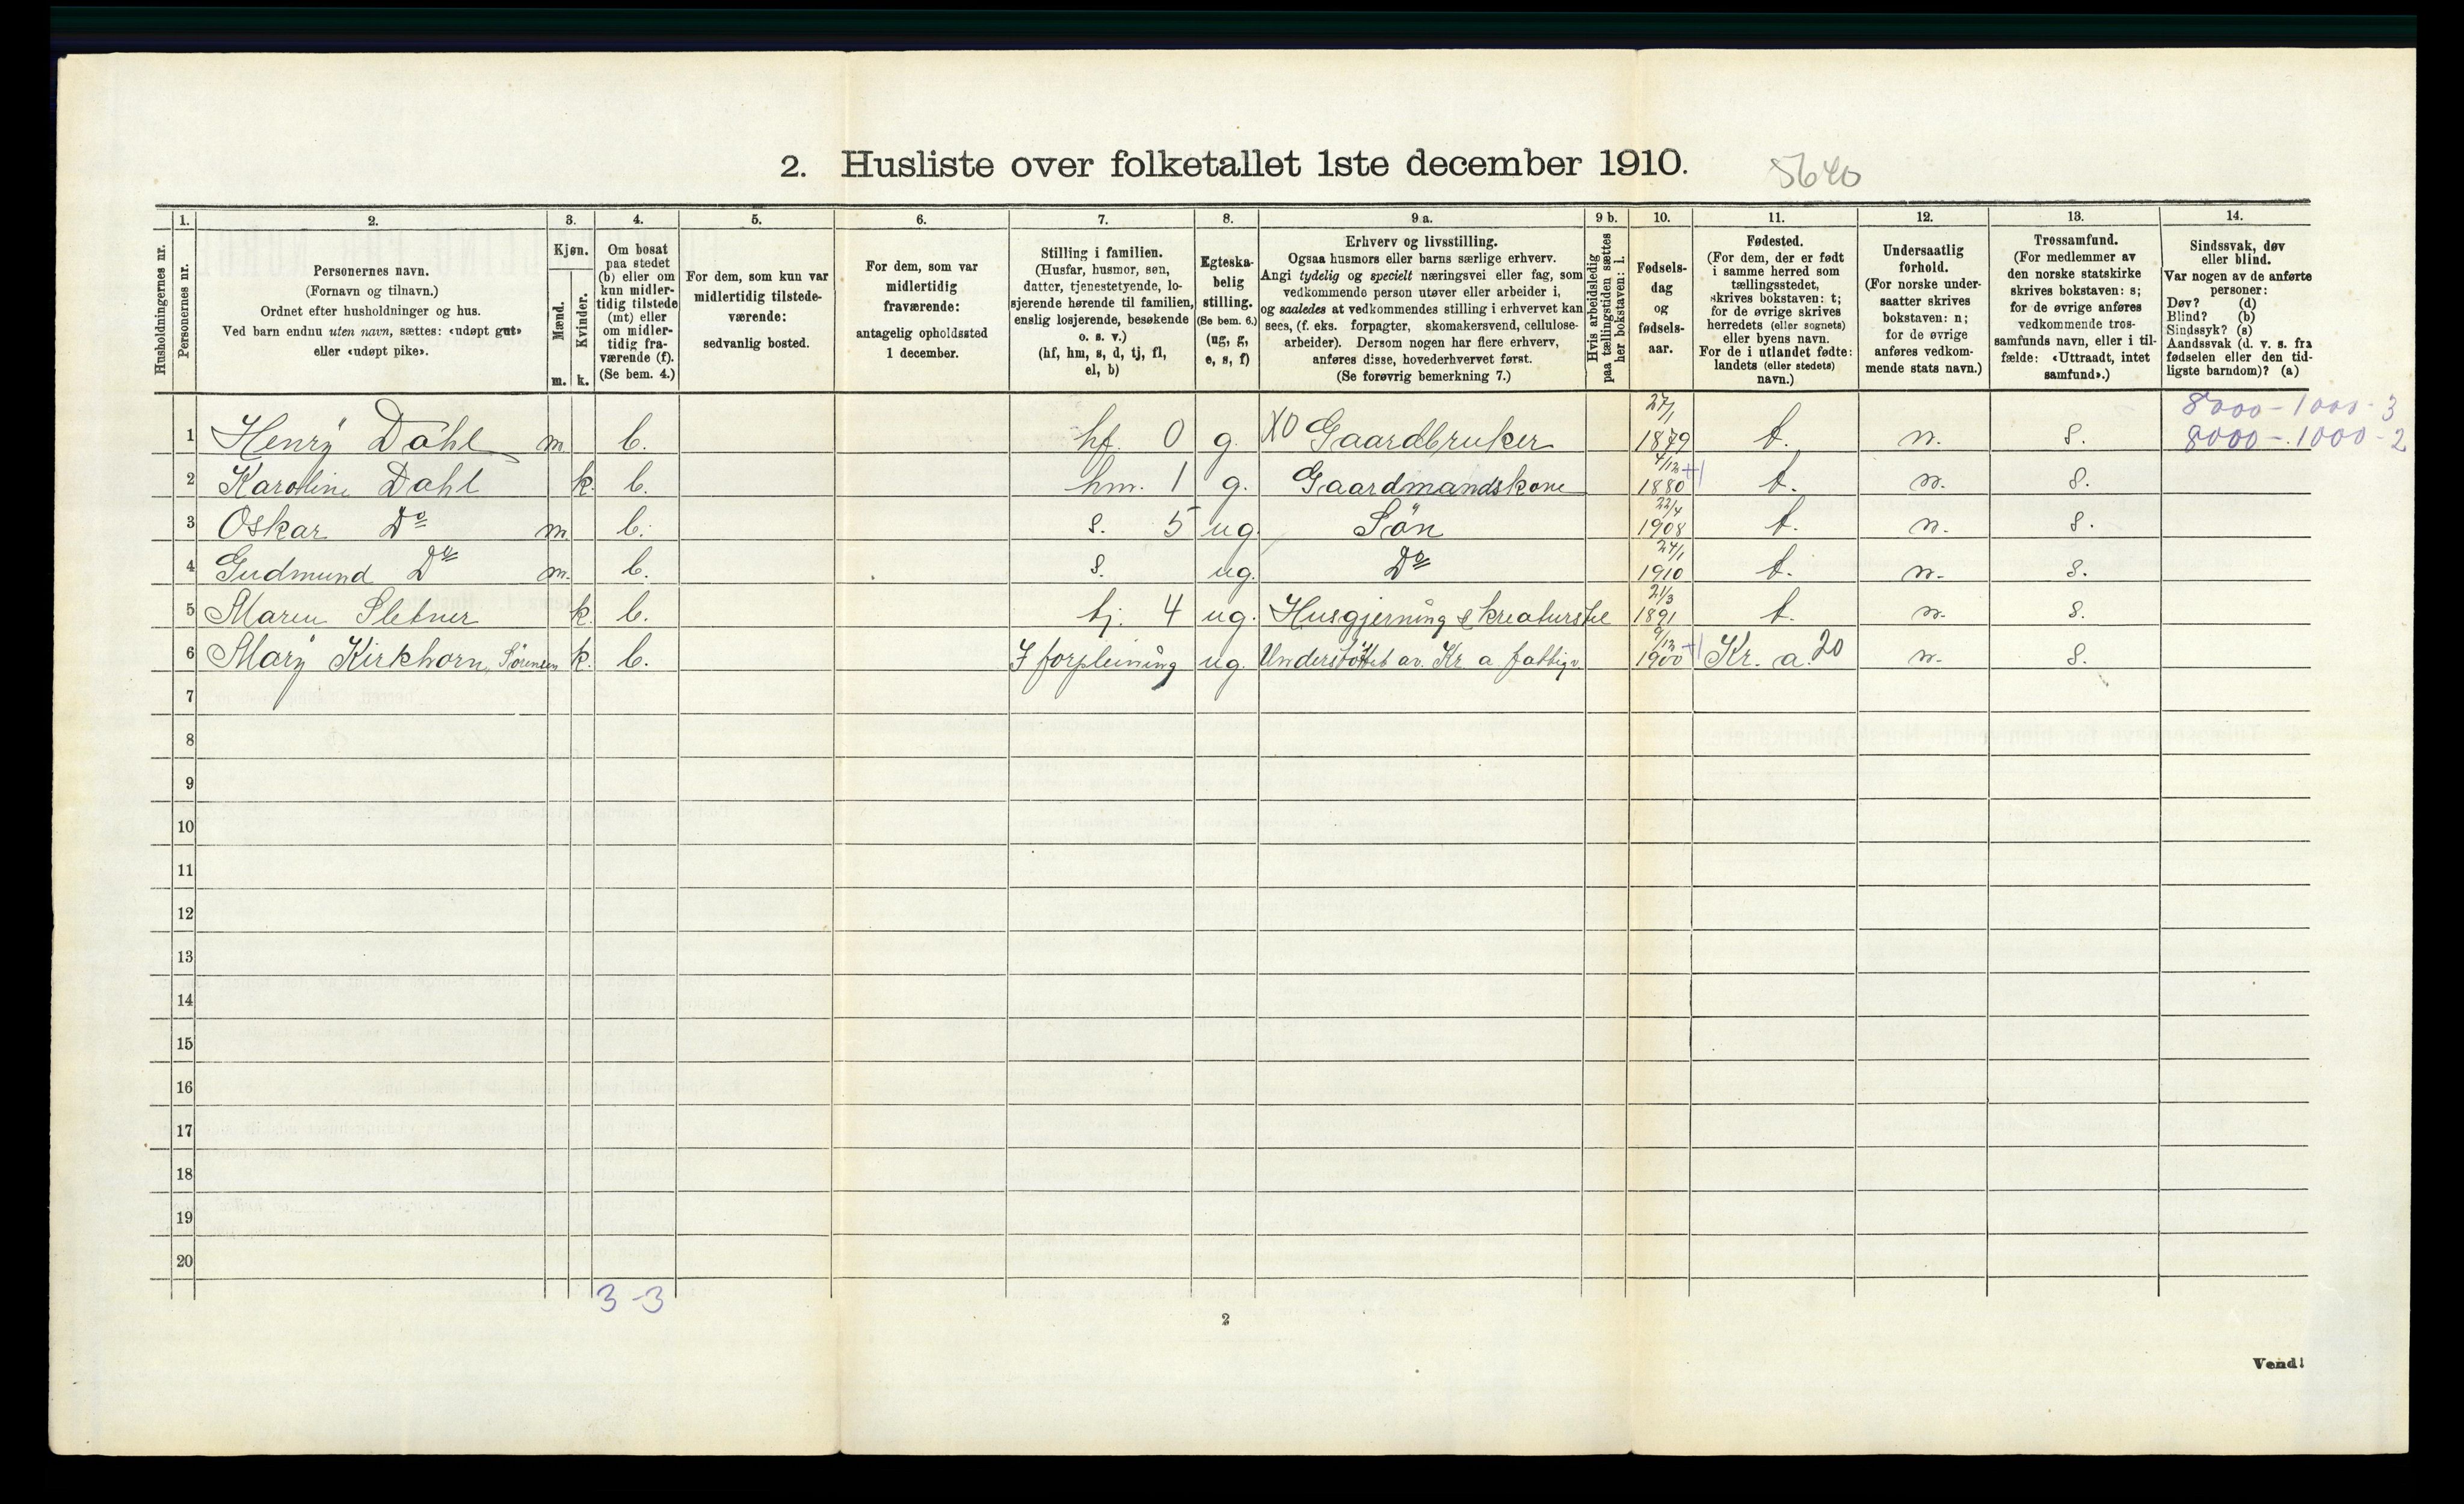 2. Husliste over folketallet 1ste december 1910.
5640
Husholdningernes nr.
1.
Personernes nr.
2.
Personernes navn.
(Fornavn og tilnavn.)
Ordnet efter husholdninger og hus.
Ved barn endnu uten navn, sættes: «udøpt gut»
eller «udøpt pike».
3.
Kjøn.
Mænd.
Kvinder.
m. k.
4.
Om bosat
paa stedet
(b) eller om
kun midler-
tidig tilstede
(mt) eller
om midler-
tidig fra-
værende (f).
(Se bem. 4.)
5.
For dem, som kun var
midlertidig tilstede-
værende:
sedvanlig bosted.
6.
For dem, som var
midlertidig
fraværende:
antagelig opholdssted
1 december.
7.
Stilling i familien.
(Husfar, husmor, søn,
datter, tjenestetyende, lo-
sjerende hørende til familien,
enslig losjerende, besøkende
o. s. v.)
(hf, hm, s, d, tj, fl,
el, b)
8.
Egteska-
belig
stilling.
(Se bem. 6.)
(ug, g,
e, s, f)
9 a.
Erhverv og livsstilling.
Ogsaa husmors eller barns særlige erhverv.
Angi tydelig og specielt næringsvei eller fag, som
vedkommende person utøver eller arbeider i,
og saaledes at vedkommendes stilling i erhvervet kan
sees, (f. eks. forpagter, skomakersvend, cellulose-
arbeider). Dersom nogen har flere erhverv,
anføres disse, hovederhvervet først.
(Se forøvrig bemerkning 7.)
9 b.
Hvis arbeidsledig
paa tællingstiden sættes
her bokstaven: l.
10.
Fødsels-
dag
og
fødsels-
aar.
11.
Fødested.
(For dem, der er født
i samme herred som
tællingsstedet,
skrives bokstaven: t;
for de øvrige skrives
herredets (eller sognets)
eller byens navn.
For de i utlandet fødte:
landets (eller stedets)
navn.)
12.
Undersaatlig
forhold.
(For norske under-
saatter skrives
bokstaven: n;
for de øvrige
anføres vedkom-
mende stats navn.)
13.
Trossamfund.
(For medlemmer av
den norske statskirke
skrives bokstaven: s;
for de øvrige anføres
vedkommende tros-
samfunds navn, eller i til-
fælde: «Uttraadt, intet
samfund».)
14.
Sindssvak, døv
eller blind.
Var nogen av de anførte
personer:
Døv? (d)
Blind? (b)
Sindssyk? (s)
Aandssvak (d. v. s. fra
fødselen eller den tid-
ligste barndom)? (a)
8000-1000-3
1 Henry Dahl m b. hf. 0 g. X0 Gaardbruker 27/1 1879 t. n. s. 8000-1000-2
2 Karoline Dahl k. b. hm. 1 g. Gaardmandskone 4/12 1880 +1 t. n. s.
3 Oskar Do m. b. s. 5 ug. Søn 22/4 1908 t. n. s.
4 Gudmund Do m. b. s. ug. Do 24/1 1910 t. n. s.
5 Maren Sletner k. b. tj. 4 ug. Husgjerning & kreaturstel 21/3 1891 t. n. s.
6 Mary Kirkhorn, Sørensen k. b. I forpleining ug. Understøttet av. Kr. a. fattigv. 9/12 1900 +1 Kr. a. 20 n. s.
7
8
9
10
11
12
13
14
15
16
17
18
19
20
3-3
2
Vend!